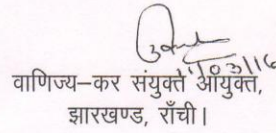 11/03/16
वाणिज्य–कर संयुक्त आयुक्त,
झारखण्ड, राँची।